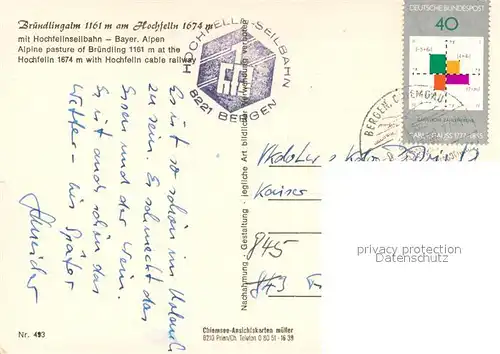 Bründlingalm 1161 m am Hochfelln 1674 m
mit Hochfellnseilbahn – Bayer. Alpen
Alpine pasture of Bründling 1161 m at the
Hochfelln 1674 m with Hochfelln cable railway
HOCHFELLN-SEILBAHN
8221 BERGEN
DEUTSCHE BUNDESPOST
40
BERGEN, CHIEMGAU
Es ist so schön im Urlaub
zu sein. Es schmeckt das
Essen und der Wein.
Es ist auch schön das
Wetter – bis später
Kaiser
845
843
Nachahmung - Gestaltung - jegliche Art bildlicher Verwendung verboten
privacy protection
watermark
Nr. 493
Chiemsee-Ansichtskarten müller
8210 Prien/Ch. Telefon 0 80 51 - 16 39